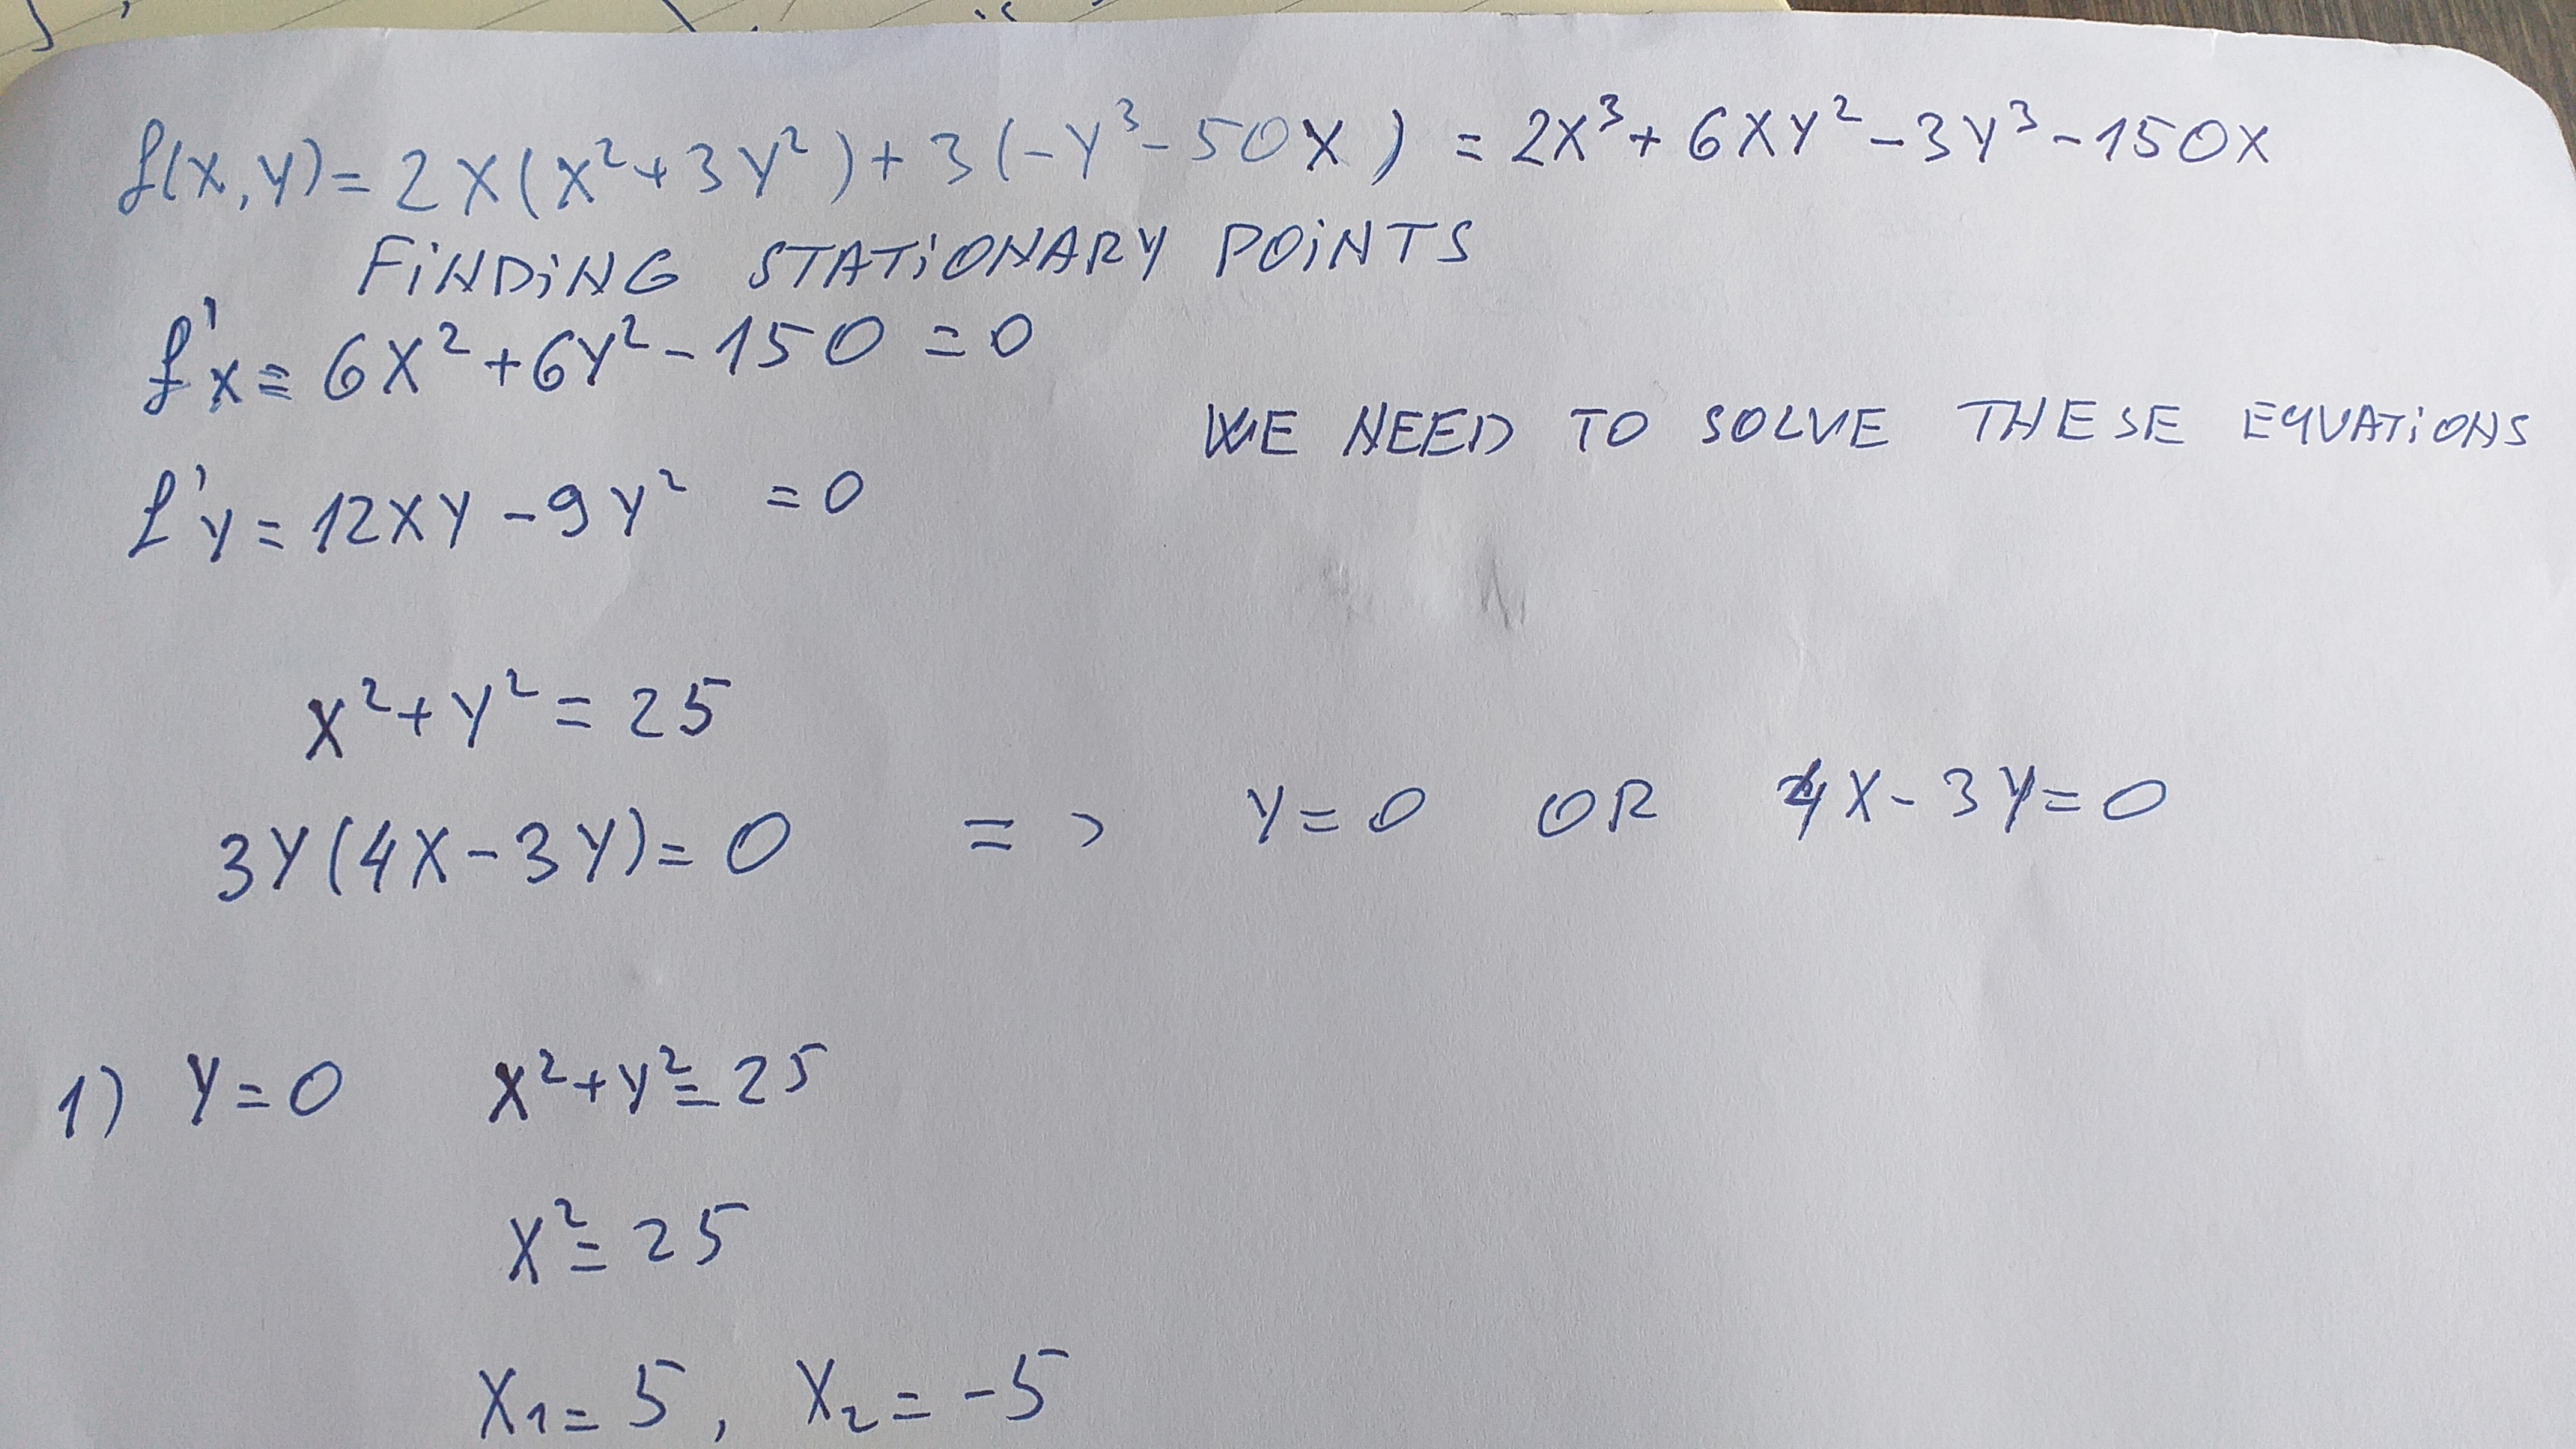 f(x,y)= 2x(x²+3y²)+3(-y³-50x) = 2x³+6xy²-3y³-150x
FINDING STATIONARY POINTS
f'x = 6x²+6y²-150 = 0
WE NEED TO SOLVE THESE EQUATIONS
f'y = 12xy-9y² = 0
x²+y² = 25
3y(4x-3y)= 0 => y=0 OR 4x-3y=0
1) y=0 x²+y²=25
x²=25
x₁=5, x₂=-5